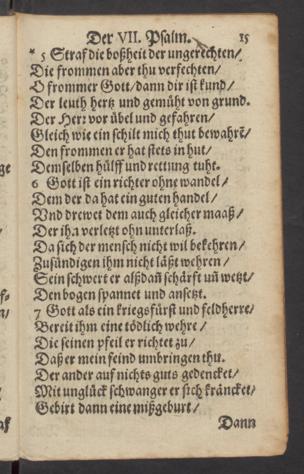 Der VII. Psalm. 15
* 5 Straf die boßheit der ungerechten/
Die frommen aber thu verfechten/
O frommer Gott/dann dir ist kund/
Der leuth hertz und gemüht von grund.
Der Herꝛ vor übel und gefahren/
Gleich wie ein schilt mich thut bewahrē/
Den frommen er hat stets in hut/
Demselben hülff und rettung tuht.
6 Gott ist ein richter ohne wandel/
Dem der da hat ein guten handel/
Und drewet dem auch gleicher maaß/
Der ihn verletzt ohn unterlaß.
Da sich der mensch nicht wil bekehren/
Zusündigen ihm nicht läßt wehren/
Sein schwert er alßdañ schärft uñ wetzt/
Den bogen spannet und ansetzt.
7 Gott als ein kriegsfürst und feldherre/
Bereit ihm eine tödlich wehre/
Die seinen pfeil er richtet zu/
Daß er mein feind umbringen thu.
Der ander auf nichts guts gedencket/
Mit unglück schwanger er sich kräncket/
Gebirt dann eine mißgeburt/
Dann